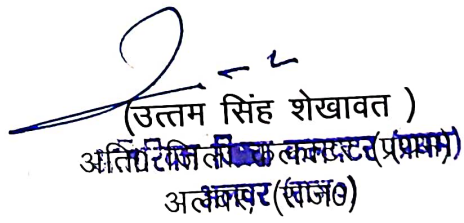 (उत्तम सिंह शेखावत )
अतिरिक्त जिला कलक्टर(प्रथम)
अलवर (राज०)